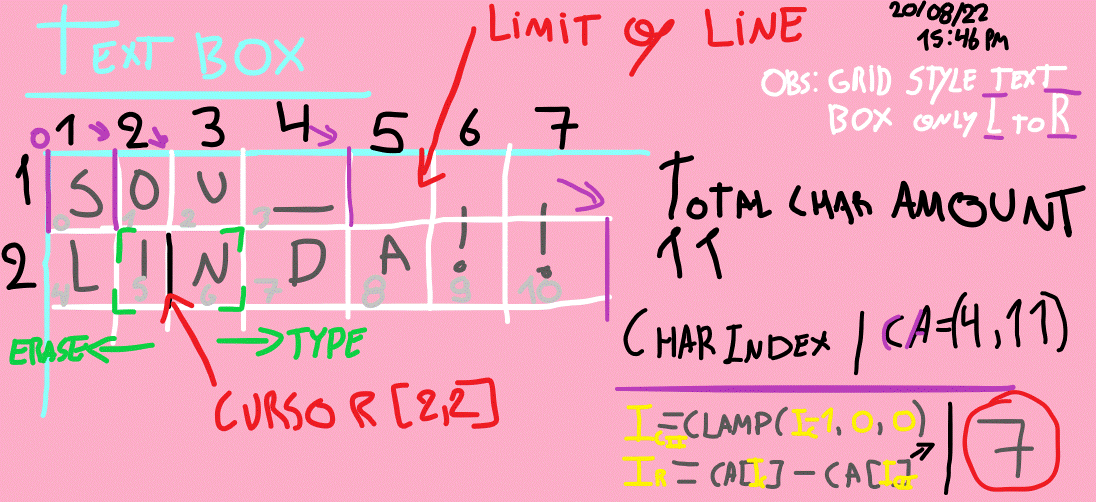 TEXT BOX
LIMIT OF LINE
20/08/22
15:46 PM
OBS: GRID STYLE TEXT
BOX ONLY L TO R
0 1 2 3 4 5 6 7
1 S O U _
0 1 2 3
2 L I N D A ! !
4 5 6 7 8 9 10
ERASE
TYPE
CURSOR [2,2]
TOTAL CHAR AMOUNT
11
CHAR INDEX | CA=(4,11)
=CLAMP(I-1, 0, 0)
IR = CA[I] - CA[I]
7